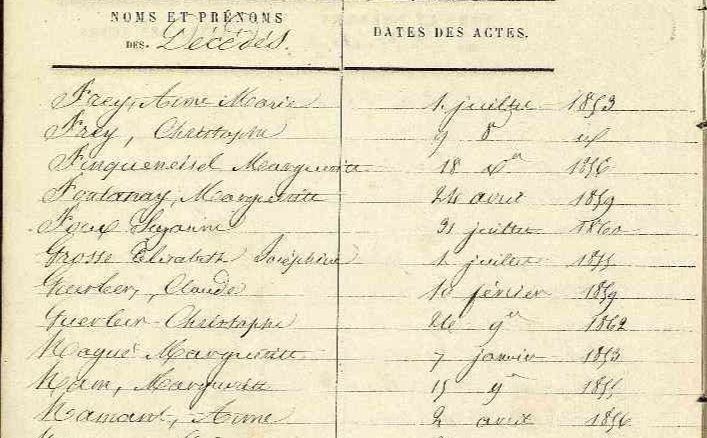 NOMS ET PRÉNOMS DATES DES ACTES.
DES Décédés.
Frey, Anne Marie 1 juillet 1853
Frey, Christophe 9 8
Marguerite 18 xre 1856
Fontanay, Marguerite 24 avril 1859
Foux Suzanne 31 juillet 1860
Grosse Elisabeth Joséphine 1 juillet 1855
Guerber, Claude 10 février 1859
Guerber Christophe 26 9re 1862
Hagué Marguerite 7 janvier 1853
Ham, Marguerite 15 9re 1855
Hamant, Anne 2 avril 1856